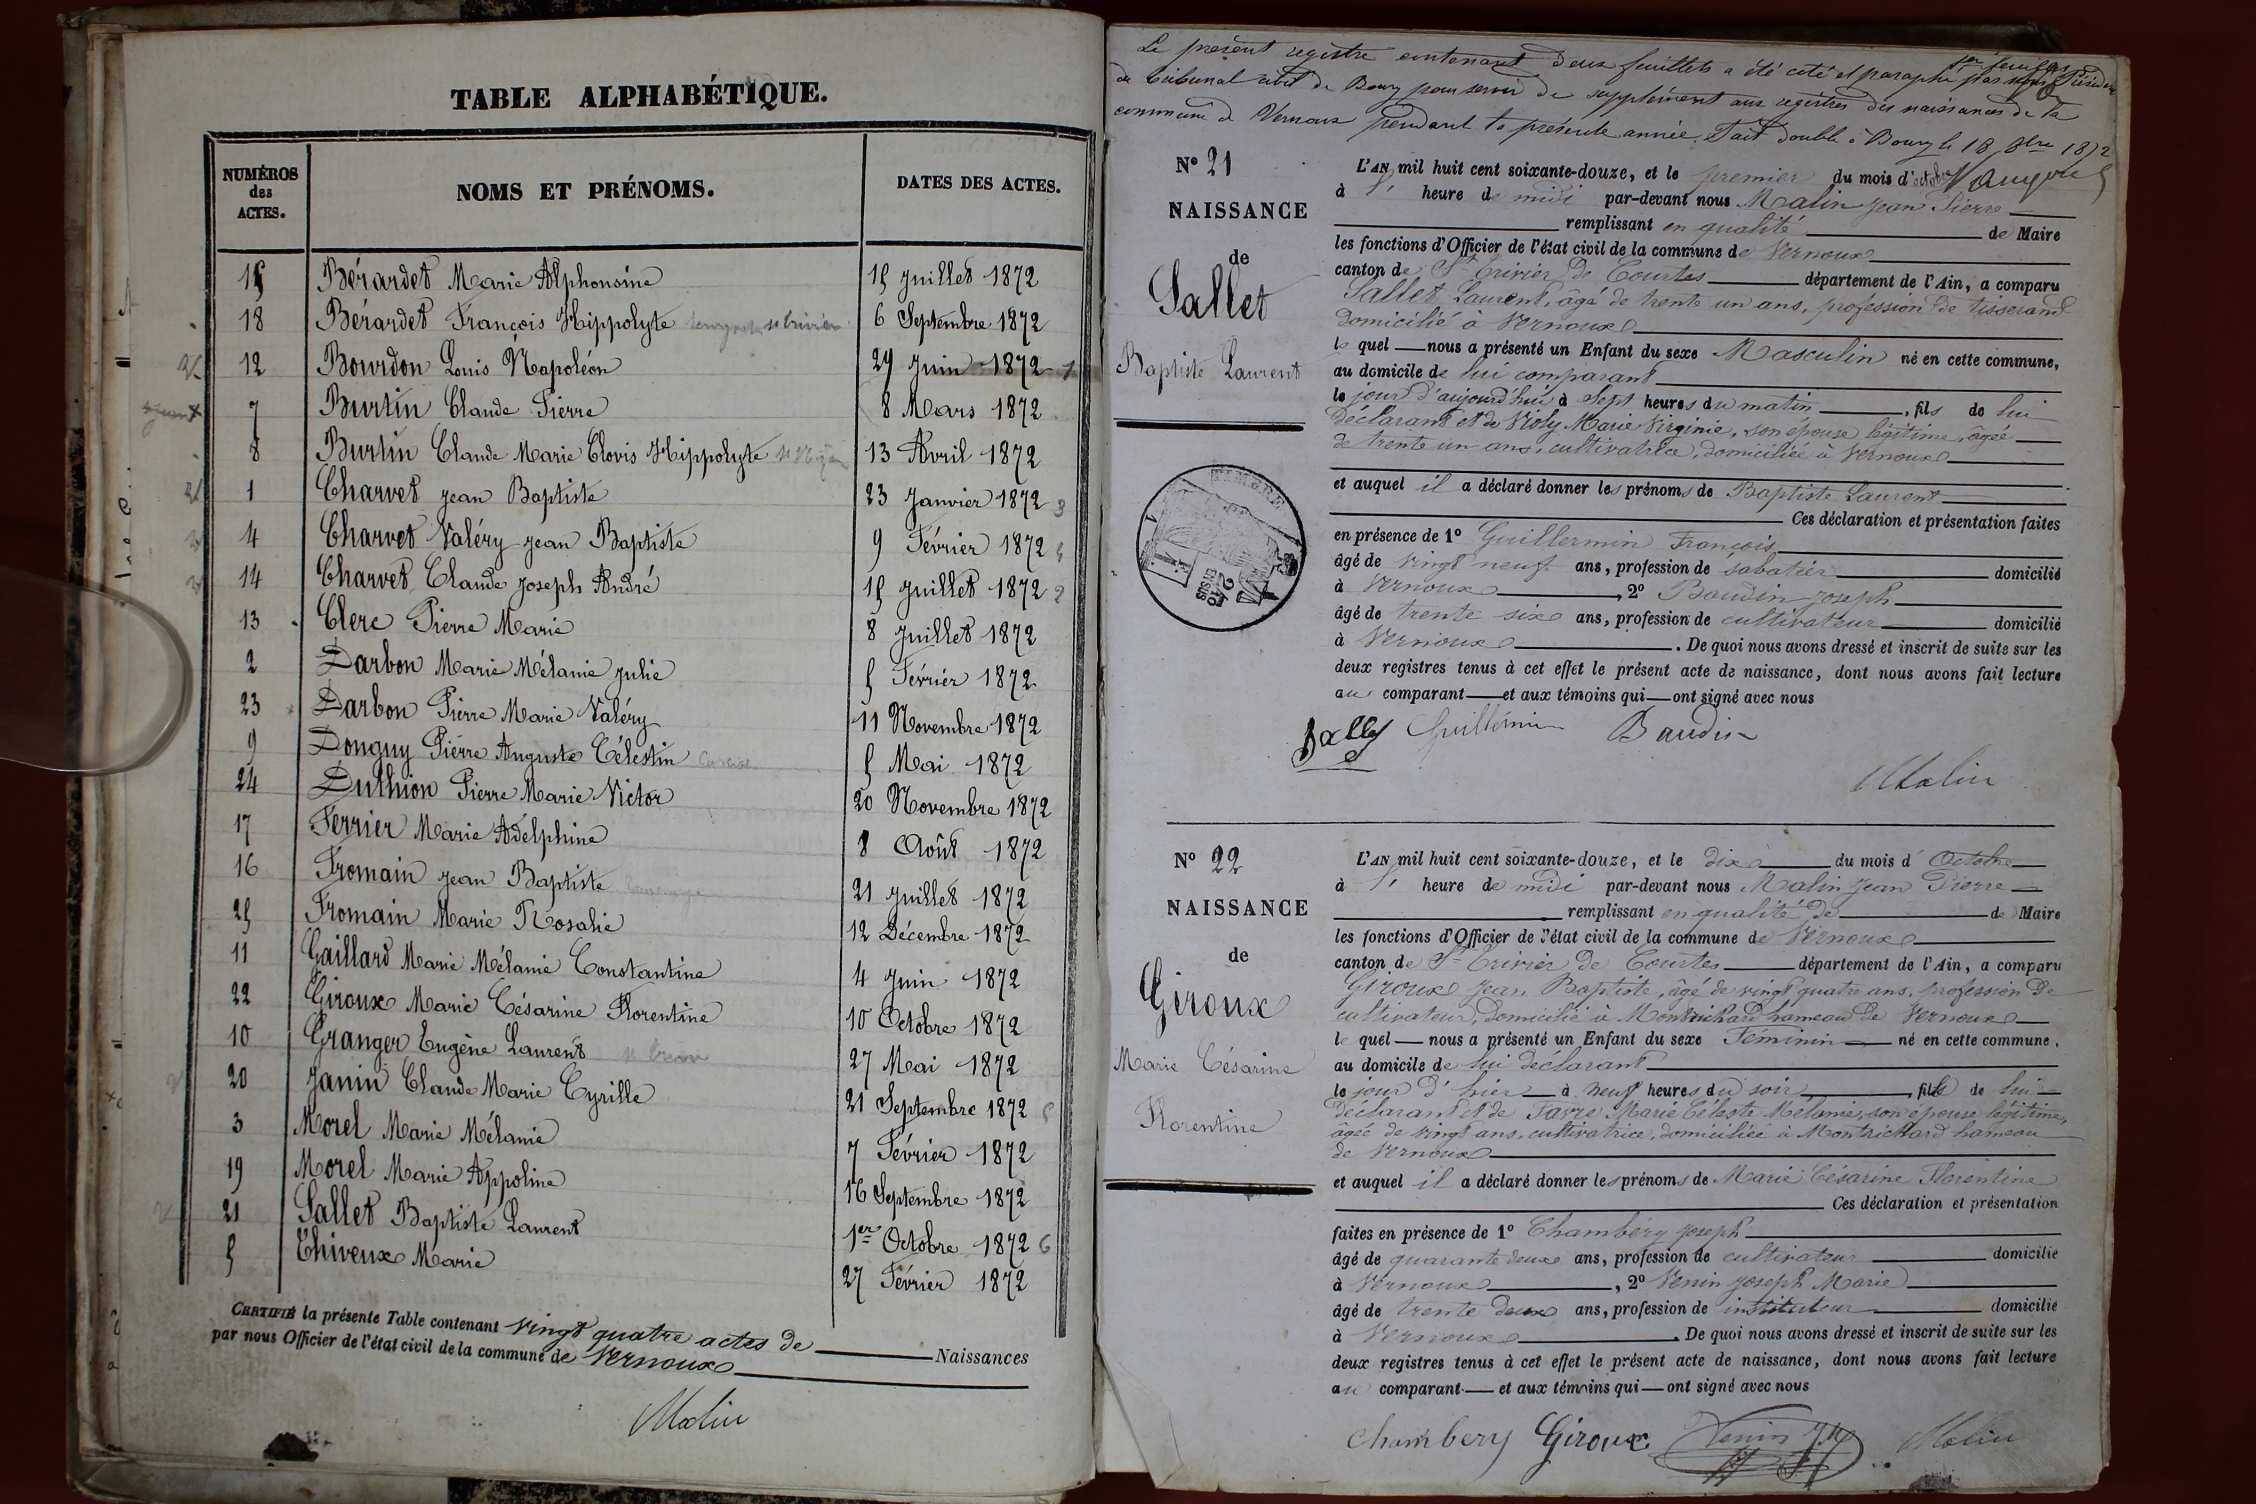 TABLE ALPHABÉTIQUE.
NUMÉROS des ACTES.
NOMS ET PRÉNOMS.
DATES DES ACTES.
15 Bérardet Marie Alphonsine 15 Juillet 1872
18 Bérardet François Hippolyte 6 Septembre 1872
12 Bourdon Louis Napoléon 29 Juin 1872
7 Burtin Claude Pierre 8 Mars 1872
8 Burtin Claude Marie Clovis Hippolyte 13 Avril 1872
1 Charvet Jean Baptiste 23 Janvier 1872 3
4 Charvet Valéry Jean Baptiste 9 Février 1872
14 Charvet Claude Joseph André 15 Juillet 1872 2
13 Clerc Pierre Marie 8 Juillet 1872
2 Darbon Marie Mélanie Julie 5 Février 1872
23 Darbon Pierre Marie Valéry 11 Novembre 1872
9 Donguy Pierre Auguste Célestin 5 Mai 1872
24 Duthion Pierre Marie Victor 20 Novembre 1872
17 Ferrier Marie Adelphine 8 Août 1872
16 Fromain Jean Baptiste 21 Juillet 1872
25 Fromain Marie Rosalie 12 Décembre 1872
11 Gaillard Marie Mélanie Constantine 4 Juin 1872
22 Giroux Marie Césarine Florentine 10 Octobre 1872
10 Granger Eugène Laurent 27 Mai 1872
20 Janin Claude Marie Cyrille 21 Septembre 1872
3 Morel Marie Mélanie 7 Février 1872
19 Morel Marie Appoline 16 Septembre 1872
21 Sallet Baptiste Laurent 1er Octobre 1872 6
5 Thiveux Marie 27 Février 1872
CERTIFIÉ la présente Table contenant vingt quatre actes de Naissances
par nous Officier de l'état civil de la commune de Vernoux
Malin
Le présent registre contenant deux feuillets a été coté et paraphé par nous Président
du tribunal civil de Bourg pour servir de supplément aux registres des naissances de la
commune de Vernoux pendant la présente année. Fait double à Bourg le 18 8bre 1872
N° 21
NAISSANCE
de
Sallet
Baptiste Laurent
L'AN mil huit cent soixante-douze, et le premier du mois d'octobre
à 1' heure de midi par-devant nous Malin Jean Pierre
remplissant en qualité de Maire
les fonctions d'Officier de l'état civil de la commune de Vernoux
canton de St Trivier de Courtes département de l'Ain, a comparu
Sallet Laurent, âgé de trente un ans, profession de tisserand
domicilié à Vernoux
le quel nous a présenté un Enfant du sexe Masculin né en cette commune,
au domicile de lui comparant
le jour d'aujourd'hui à sept heures du matin, fils de lui
déclarant et de Violy Marie Virginie, son épouse légitime, âgée
de trente un ans, cultivatrice, domiciliée à Vernoux
et auquel il a déclaré donner les prénoms de Baptiste Laurent
Ces déclaration et présentation faites
en présence de 1° Guillermin François
âgé de vingt neuf ans, profession de sabatier domicilié
à Vernoux, 2° Baudin Joseph
âgé de trente six ans, profession de cultivateur domicilié
à Vernoux. De quoi nous avons dressé et inscrit de suite sur les
deux registres tenus à cet effet le présent acte de naissance, dont nous avons fait lecture
au comparant et aux témoins qui ont signé avec nous
Sally Guillermin Baudin
Malin
TIMBRE
2/10 EN SUS
N° 22
NAISSANCE
de
Giroux
Marie Césarine
Florentine
L'AN mil huit cent soixante-douze, et le dix du mois d'Octobre
à 1' heure de midi par-devant nous Malin Jean Pierre
remplissant en qualité de de Maire
les fonctions d'Officier de l'état civil de la commune de Vernoux
canton de St Trivier de Courtes département de l'Ain, a comparu
Giroux Jean Baptiste, âgé de vingt quatre ans, profession de
cultivateur, domicilié à Montrichard hameau de Vernoux
le quel nous a présenté un Enfant du sexe Féminin né en cette commune,
au domicile de lui déclarant
le jour d'hier à neuf heures du soir, fille de lui
déclarant et de Favre Marie Céleste Mélanie, son épouse légitime,
âgée de vingt ans, cultivatrice, domiciliée à Montrichard hameau
de Vernoux
et auquel il a déclaré donner les prénoms de Marie Césarine Florentine
Ces déclaration et présentation
faites en présence de 1° Chambéry Joseph
âgé de quarante deux ans, profession de cultivateur domicilié
à Vernoux, 2° Venin Joseph Marie
âgé de trente deux ans, profession de instituteur domicilié
à Vernoux. De quoi nous avons dressé et inscrit de suite sur les
deux registres tenus à cet effet le présent acte de naissance, dont nous avons fait lecture
au comparant et aux témoins qui ont signé avec nous
Chambery Giroux Venin J.M Malin